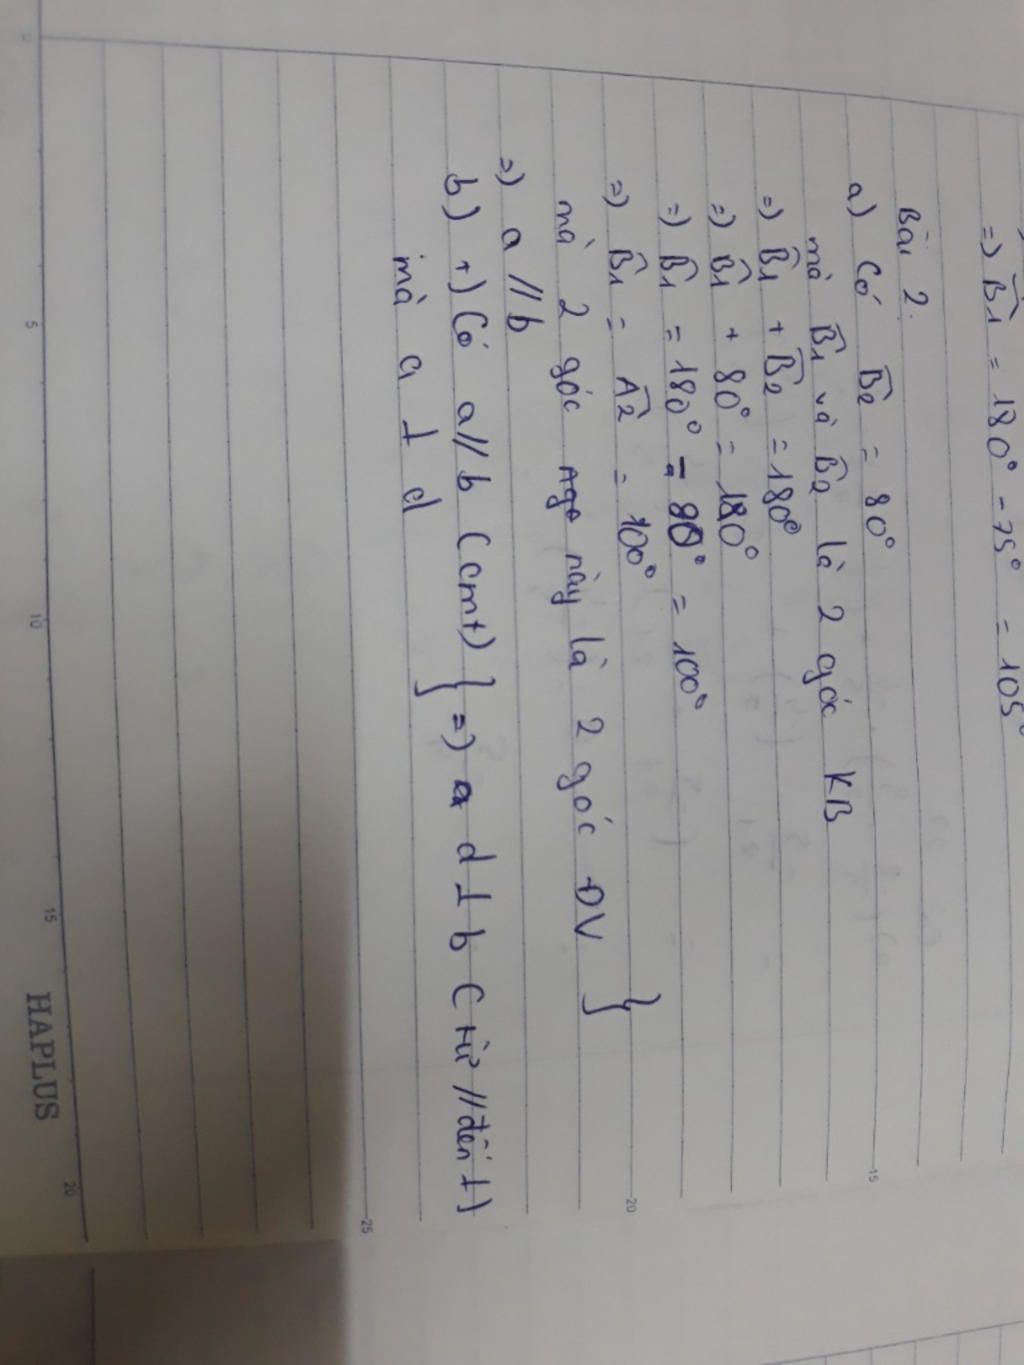 =) B̂1 = 180° - 75° = 105°
Bài 2.
a) Có B̂2 = 80°
mà B̂1 và B̂2 là 2 góc KB
=) B̂1 + B̂2 = 180°
=) B̂1 + 80° = 180°
=) B̂1 = 180° - 80° = 100°
=) B̂1 = Â2 = 100°
mà 2 góc này là 2 góc ĐV }
=) a // b
b) +) Có a // b (cmt) } =) d ⊥ b (từ // đến ⊥)
mà a ⊥ d
5
10
15
20
15
20
25
HAPLUS